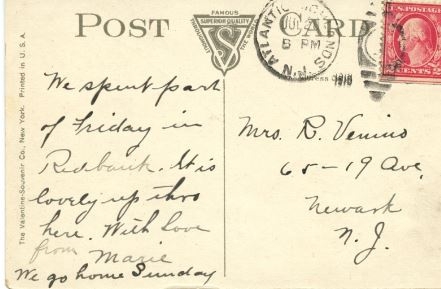 POST CARD
FAMOUS
SUPERIOR QUALITY
THROUGHOUT THE WORLD
VS
ATLANTIC
N.J.
5 PM
U.S. POSTAGE
CENTS 2
The Valentine-Souvenir Co., New York. Printed in U.S.A.
We spent part
of Friday in
Redbank. It is
lovely up thro
here. With Love
from Marie
We go home Sunday
Mrs. R. Venino
65-19 Ave,
Newark
N. J.